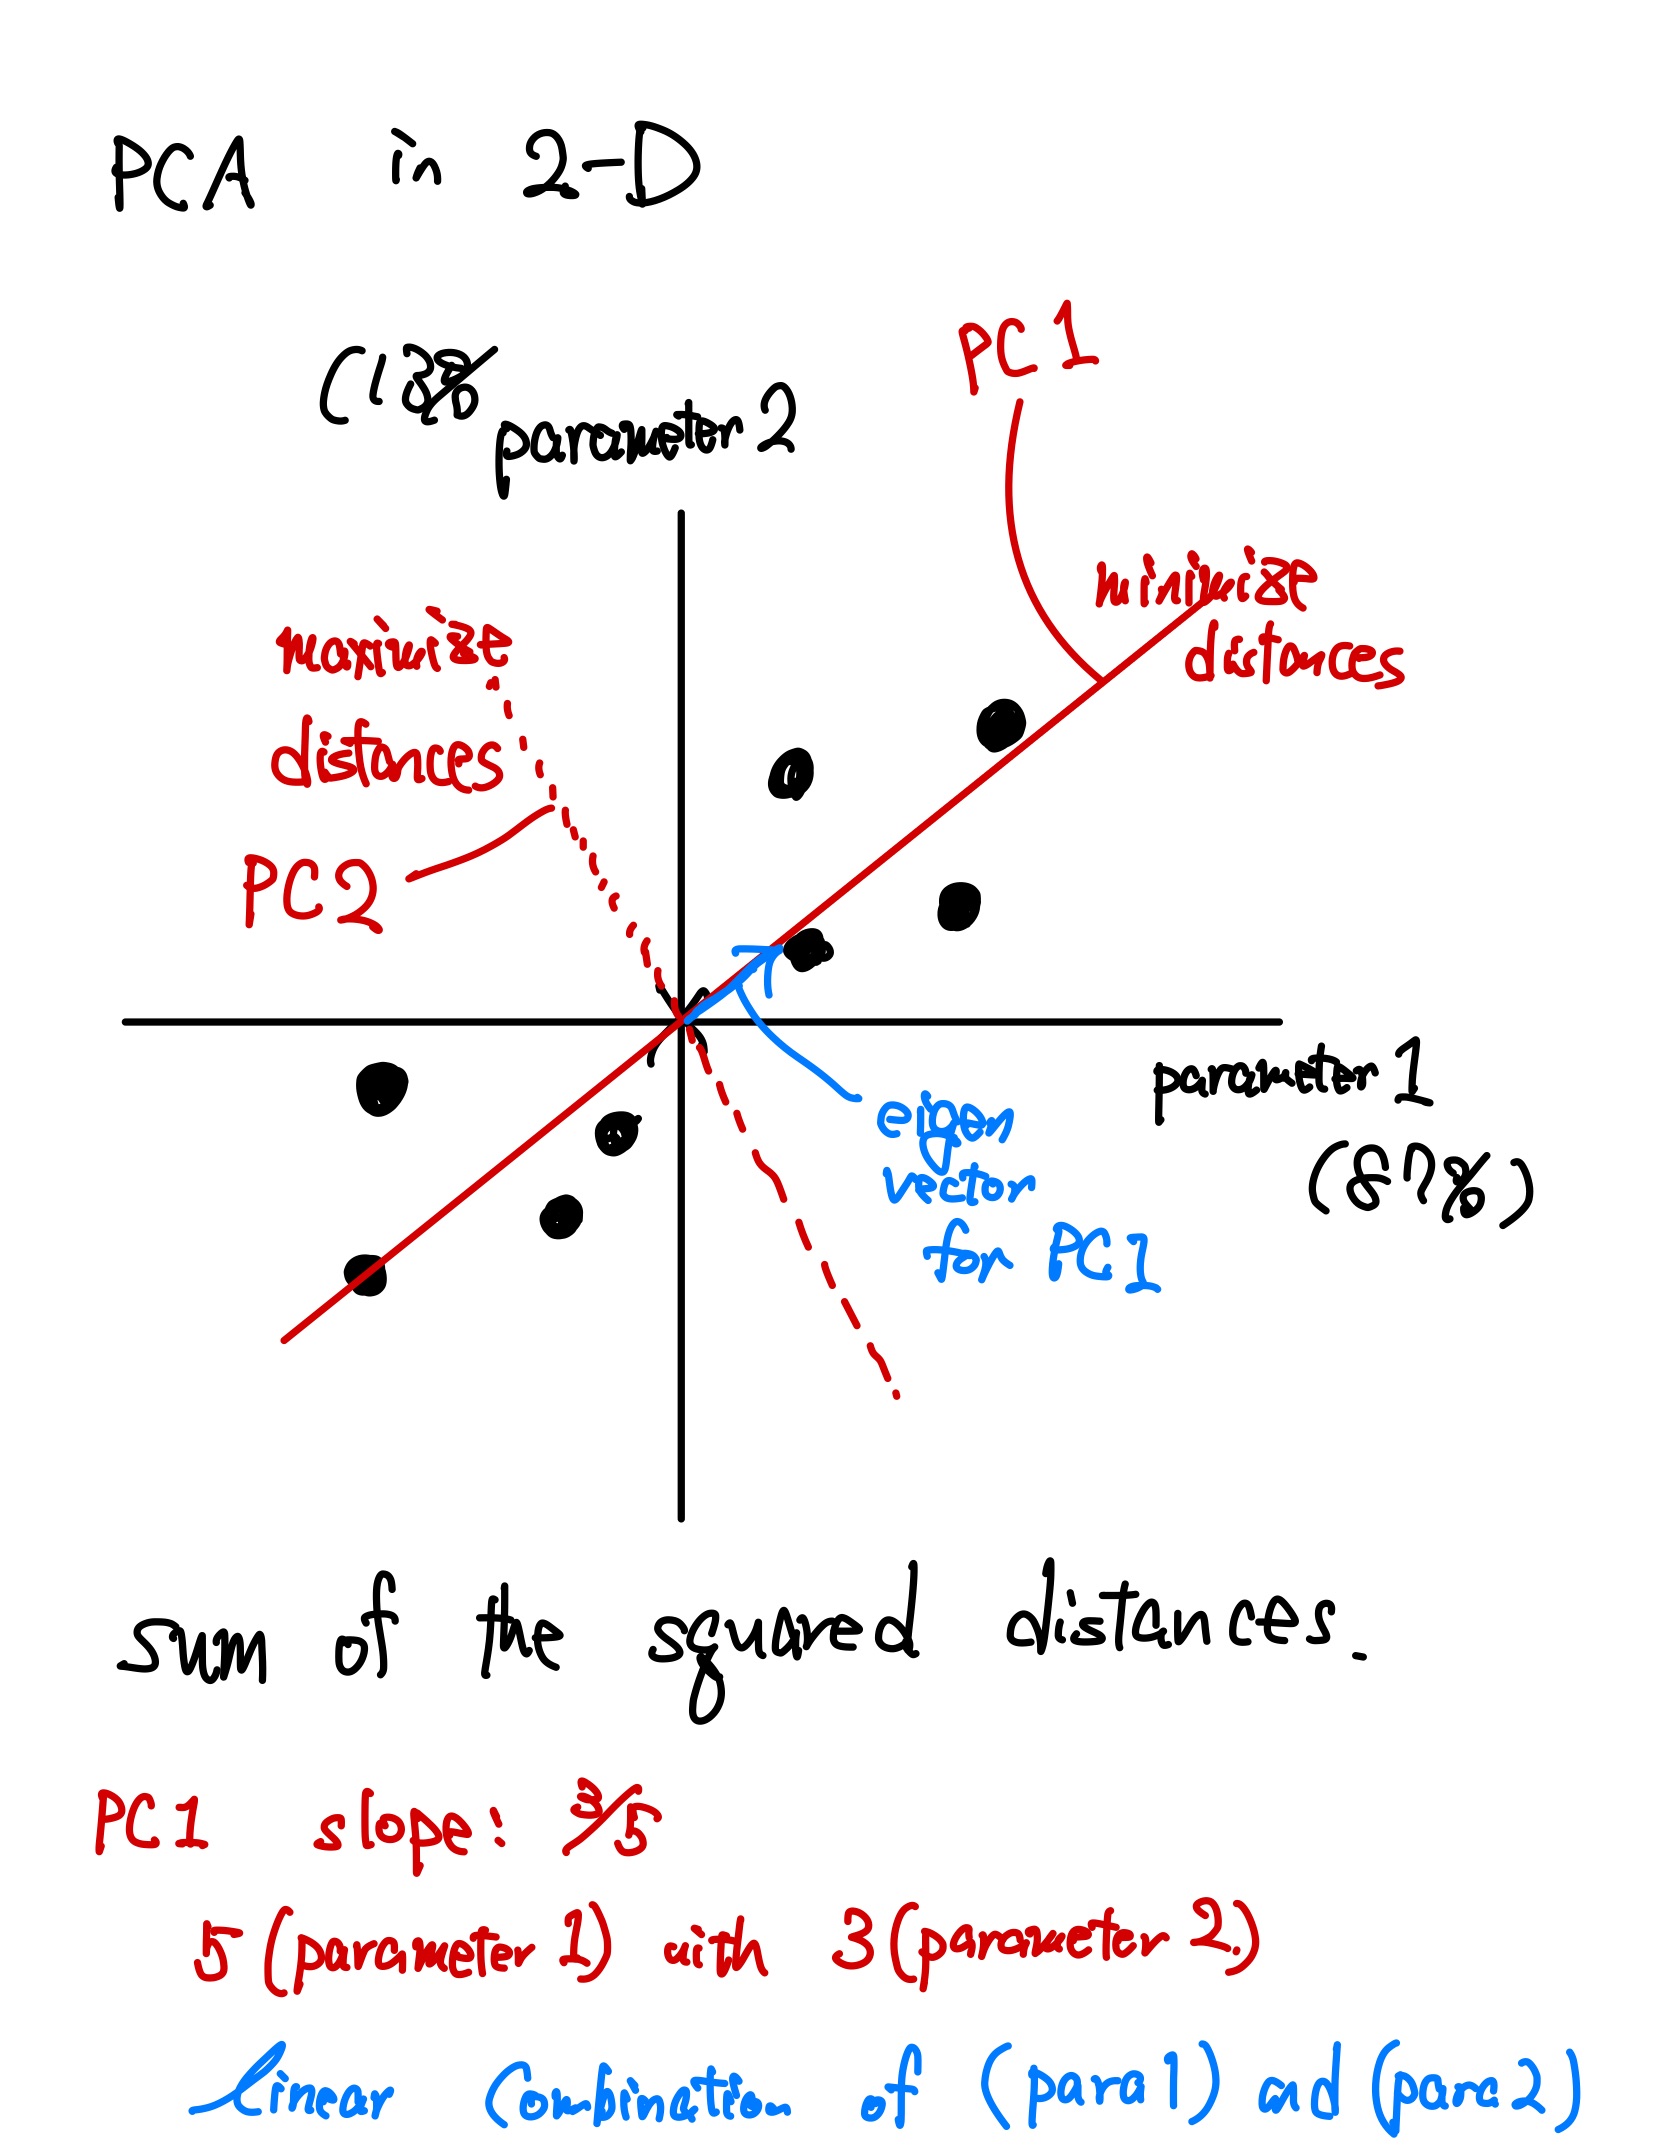 PCA in 2-D
(13%
parameter 2
PC1
minimize
distances
maximize
distances
PC2
parameter 1
(87%)
eigen
vector
for PC1
sum of the squared distances.
PC1 slope: 3/5
5 (parameter 1) with 3 (parameter 2)
linear combination of (para1) and (para2)